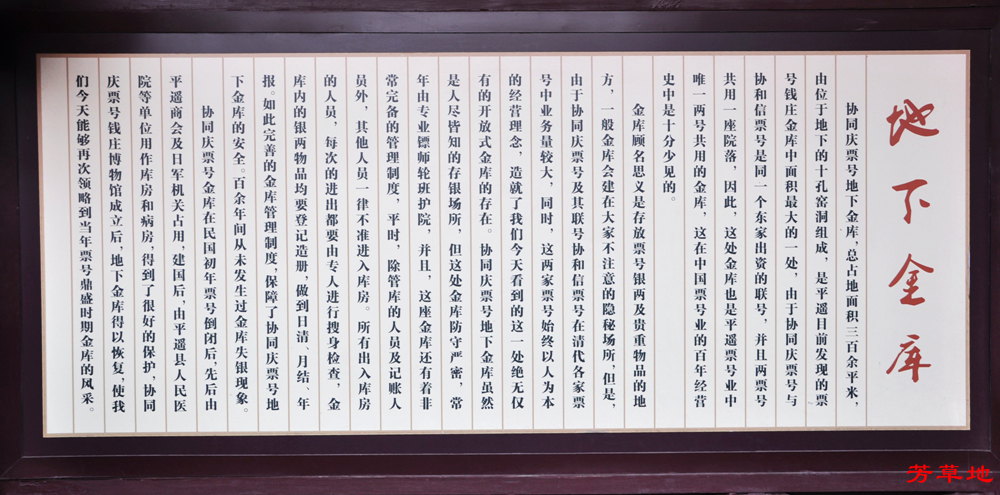 地下金库
协同庆票号地下金库，总占地面积三百余平米，
由位于地下的十孔窑洞组成，是平遥目前发现的票
号钱庄金库中面积最大的一处，由于协同庆票号与
协和信票号是同一个东家出资的联号，并且两票号
共用一座院落，因此，这处金库也是平遥票号业中
唯一两号共用的金库，这在中国票号业的百年经营
史中是十分少见的。
金库顾名思义是存放票号银两及贵重物品的地
方，一般金库会建在大家不注意的隐秘场所，但是，
由于协同庆票号及其联号协和信票号在清代各家票
号中业务量较大，同时，这两家票号始终以人为本
的经营理念，造就了我们今天看到的这一处绝无仅
有的开放式金库的存在。协同庆票号地下金库虽然
是人尽皆知的存银场所，但这处金库防守严密，常
年由专业镖师轮班护院，并且，这座金库还有着非
常完备的管理制度，平时，除管库的人员及记账人
员外，其他人员一律不准进入库房。所有出入库房
的人员，每次的进出都要由专人进行搜身检查，金
库内的银两物品均要登记造册，做到日清、月结、年
报。如此完善的金库管理制度，保障了协同庆票号地
下金库的安全。百余年间从未发生过金库失银现象。
协同庆票号金库在民国初年票号倒闭后，先后由
平遥商会及日军机关占用，建国后，由平遥县人民医
院等单位用作库房和病房，得到了很好的保护，协同
庆票号钱庄博物馆成立后，地下金库得以恢复，使我
们今天能够再次领略到当年票号鼎盛时期金库的风采。
芳草地